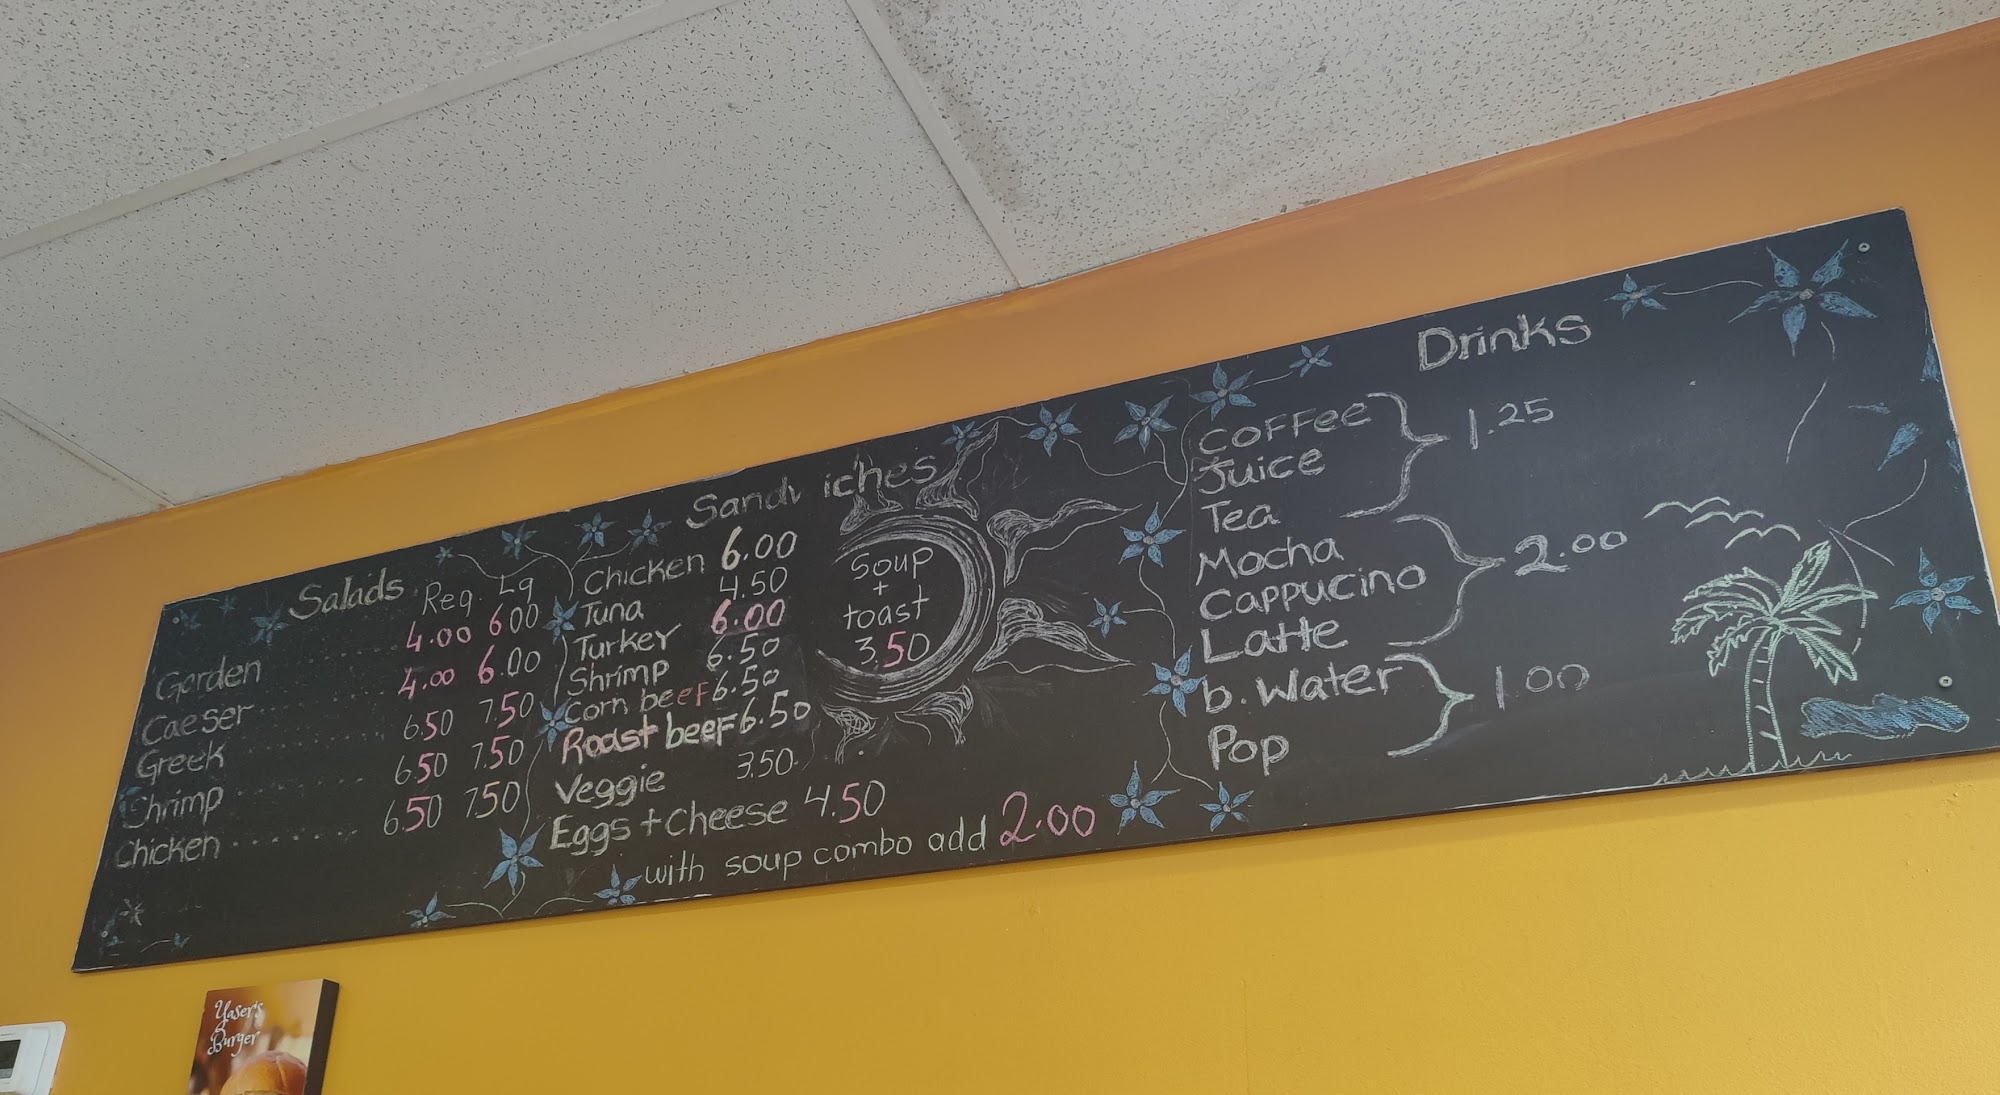 Salads Reg. Lg
Garden ........ 4.00 6.00
Caeser ........ 4.00 6.00
Greek ........ 6.50 7.50
Shrimp ........ 6.50 7.50
Chicken ........ 6.50 7.50
Sandwiches
Chicken 6.00
Tuna 4.50
Turkey 6.00
Shrimp 6.50
Corn beef 6.50
Roast beef 6.50
Veggie 3.50
Eggs + cheese 4.50
with soup combo add 2.00
Soup
+
toast
3.50
Drinks
Coffee
Juice
Tea
1.25
Mocha
Cappucino
Latte
2.00
b. Water
Pop
1.00
Yaser's
Burger